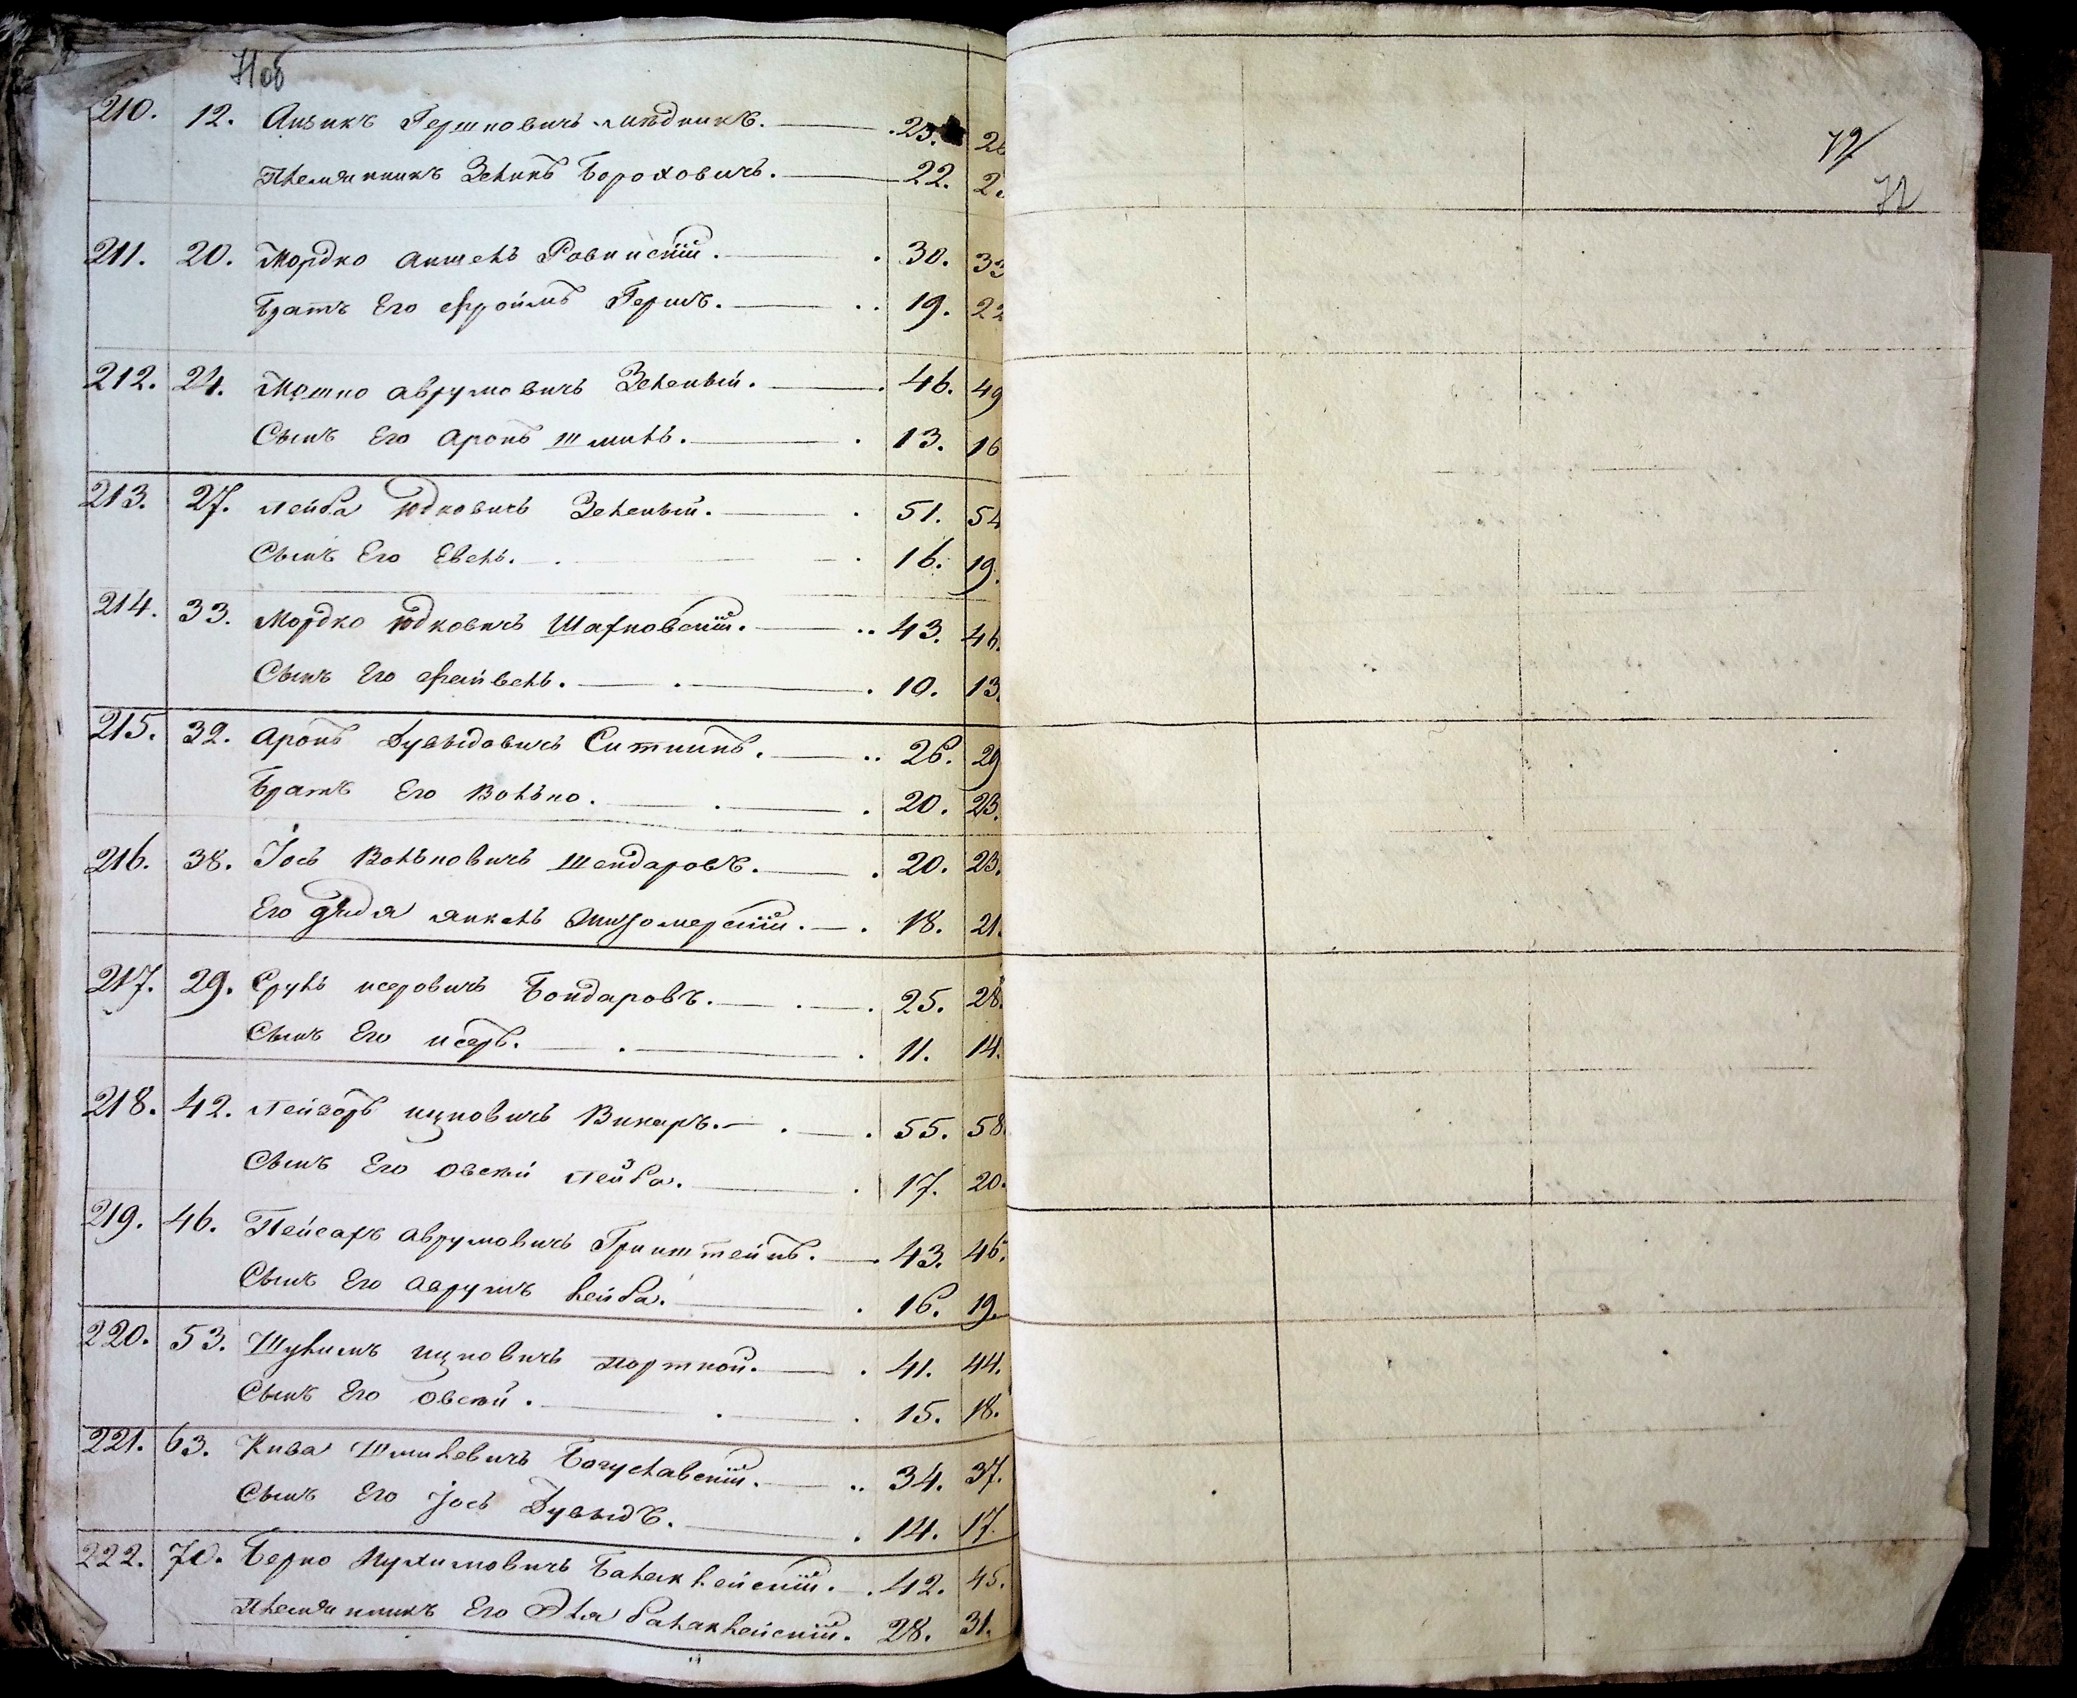 71об
210. 12. Аизикъ Гершковичъ Мѣдникъ. 25. 2
Племянникъ Зеликъ Бороховичъ. 22. 2
211. 20. Мордко Аншель Ровинскій. 30. 33
Братъ Его Фроимъ Гершъ. 19. 22
212. 24. Мошко Аврумовичъ Зеленый. 46. 49
Сынъ Его Аронъ Шмиль. 13. 16
213. 27. Лейба Юдковичъ Зеленый. 51. 54
Сынъ Его Евель. 16. 19.
214. 33. Мордко Юдковичъ Шахновскій. 43. 46.
Сынъ Его Файвель. 10. 13.
215. 32. Аронъ Дувыдовичъ Ситникъ. 26. 29
Братъ Его Волько. 20. 23.
216. 38. Іось Вольковичъ Шендаровъ. 20. 23.
Его дядя Янкель 18. 21.
217. 29. Сруль Исеровичъ Бондаровъ. 25. 28.
Сынъ Его Исеръ. 11. 14.
218. 42. Лейзоръ Ицковичъ Викаръ. 55. 58
Сынъ Его Овсѣй Лейба. 17. 20.
219. 46. Пейсахъ Аврумовичъ Гринштейнъ. 43. 46.
Сынъ Его Аврумъ Лейба. 16. 19.
220. 53. Шулимъ Ицковичъ Портной. 41. 44.
Сынъ Его Овсѣй. 15. 18.
221. 63. Кива Шмилевичъ Богуславскій. 34. 37.
Сынъ Его Іось Дувыдъ. 14. 17.
222. 70. Берко Нухимовичъ Балаклейскій. 42. 45.
Племянникъ Его Эля Балаклейскій. 28. 31.
72
72